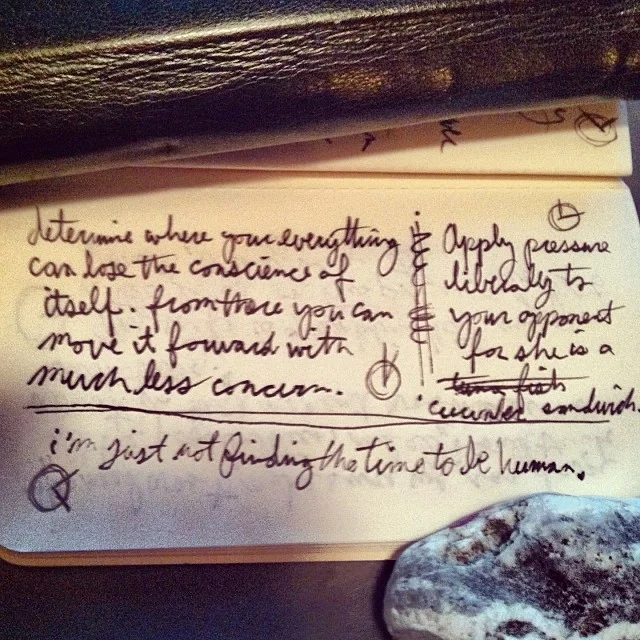 determine where your everything
can lose the conscience of
itself. from there you can
move it forward with
much less concern.
Apply pressure
liberally to
your opponent
for she is a
tuna fish
cucumber sandwich.
i'm just not finding the time to be human.